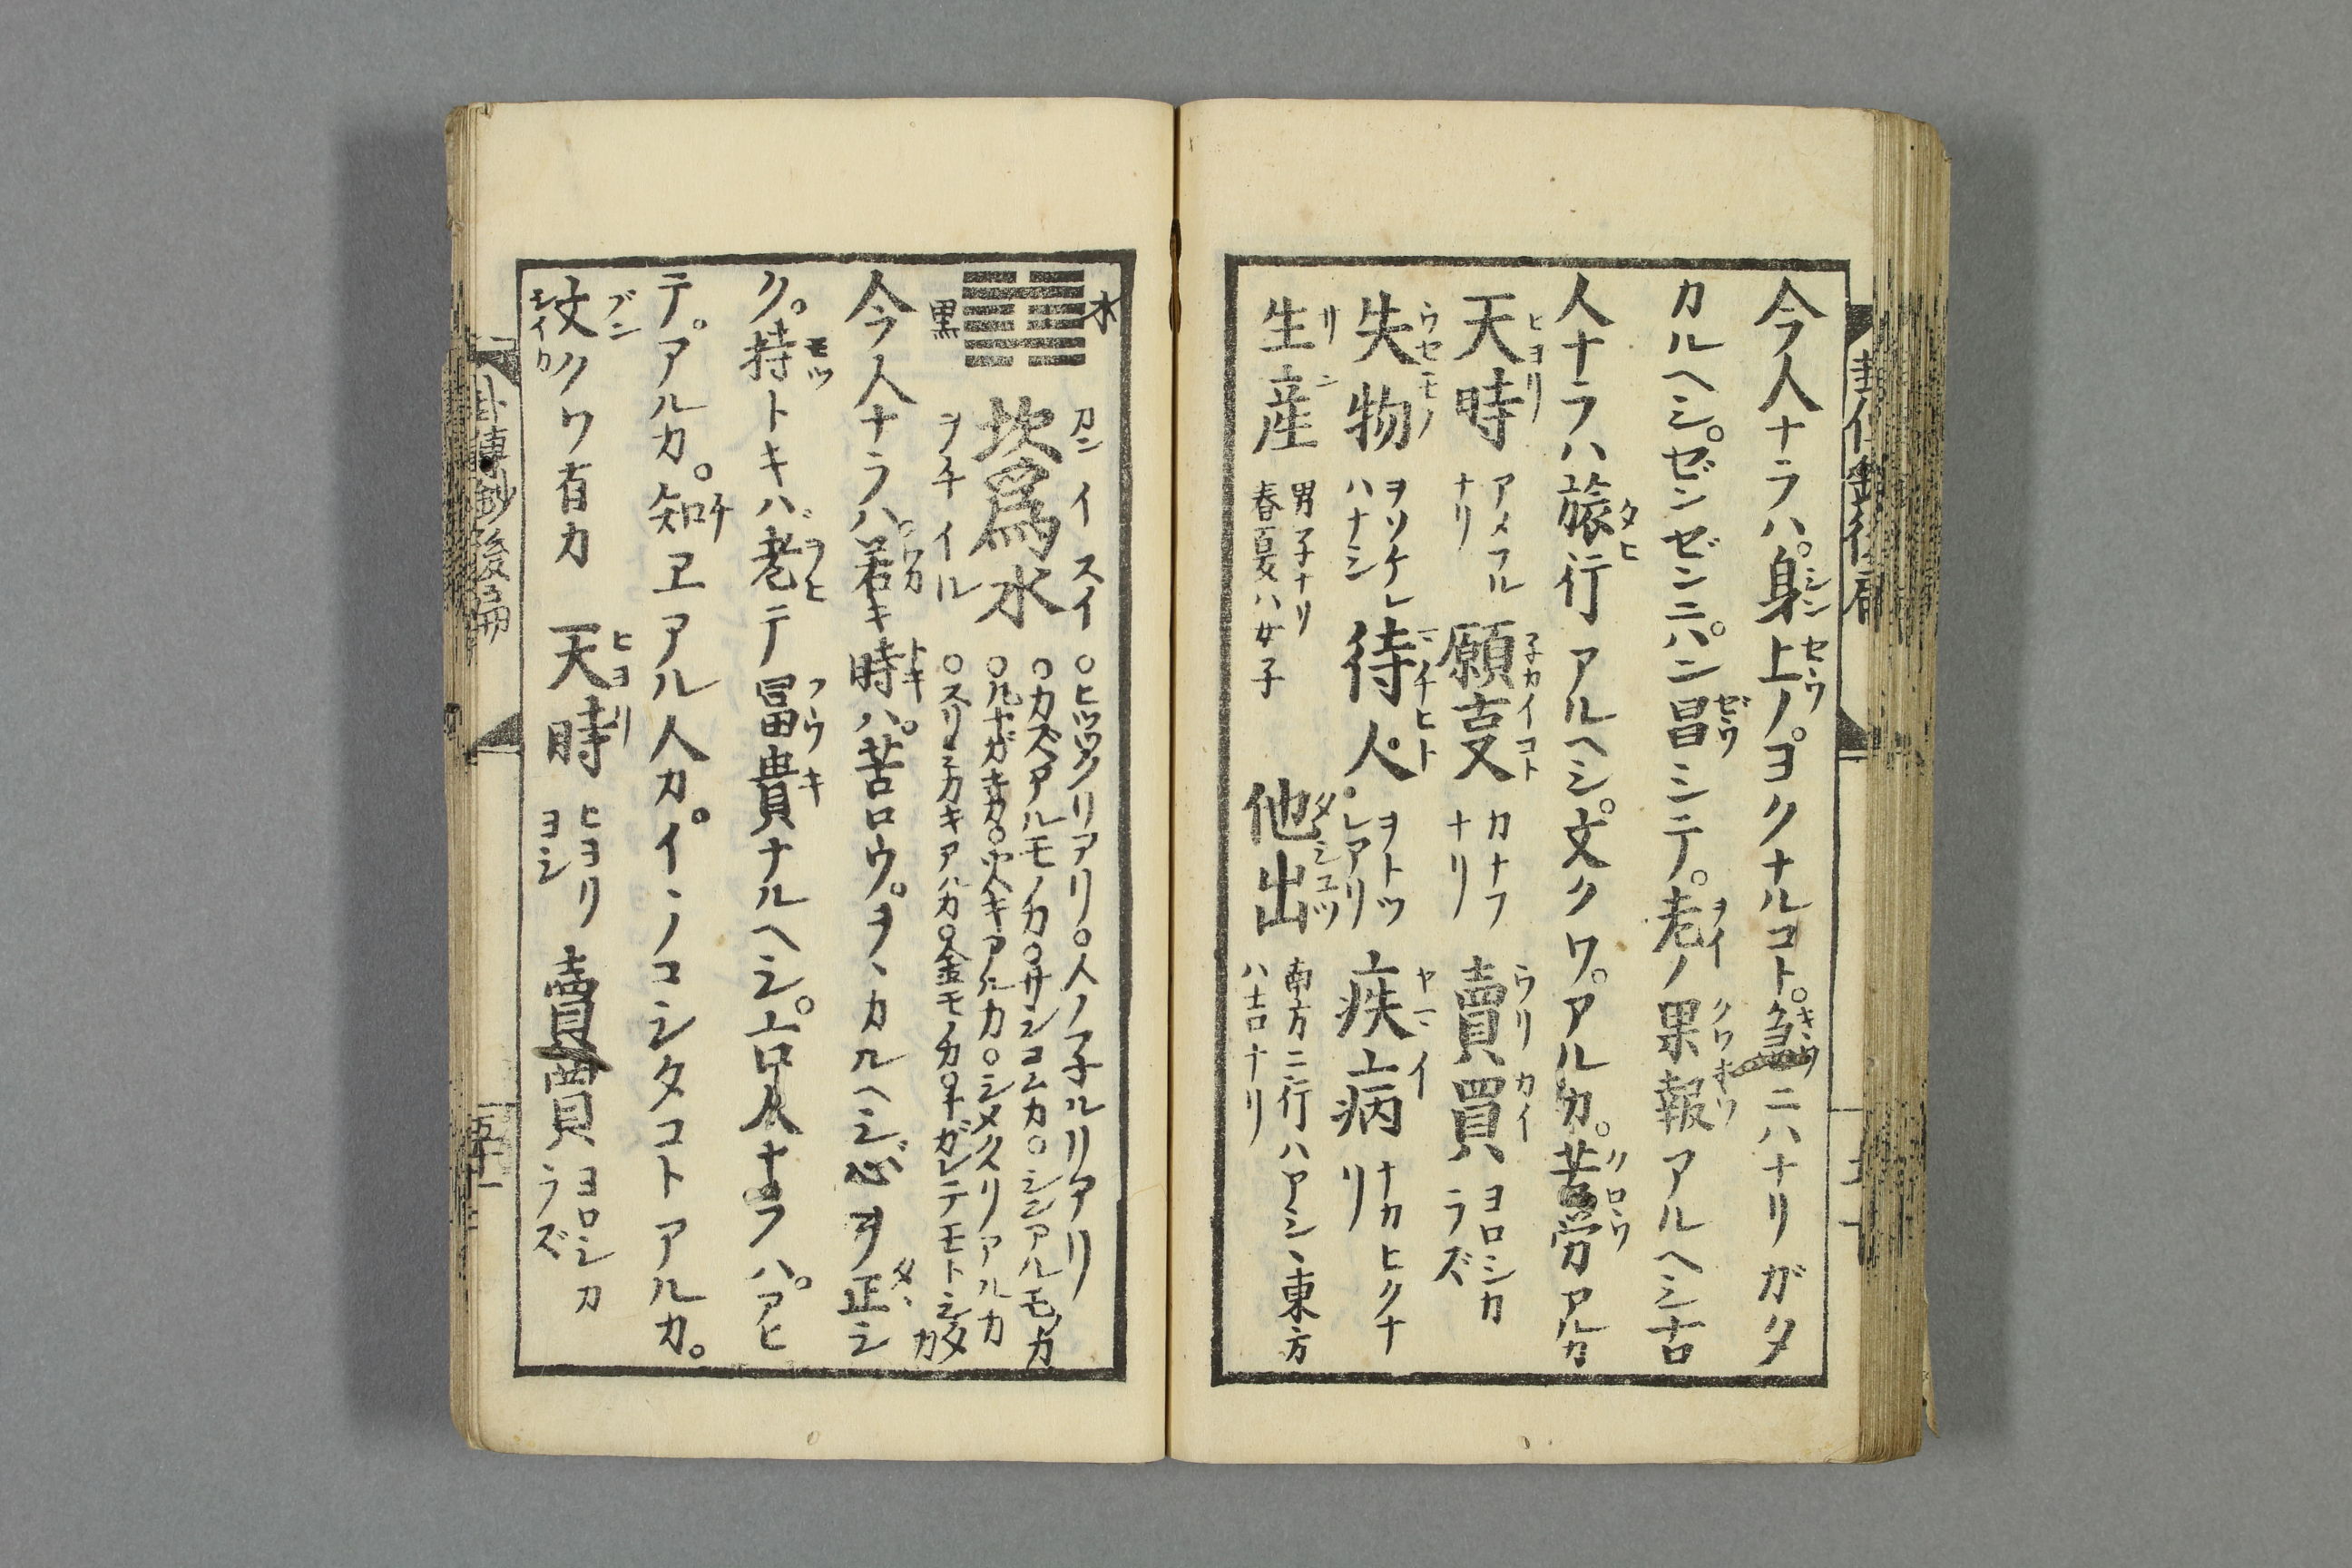 今人ナラハ身上ノヨクナルコト。急ニハナリガタ
カルヘシ。ゼンゼンニハン昌シテ。老ノ果報アルヘシ古
人ナラハ旅行アルヘシ。文クワ。アルカ。苦労アルカ
天時 アメフルナリ 願叓 カナフナリ 賣買 ヨロシカラズ
失物 ヲソケレハナシ 待人 ヲトツレアリ 疾病 ナカヒクナリ
生産 男子ナリ春夏ハ女子 他出 南方ニ行ハアシ、東方ハ吉ナリ
水 黒 坎為水 カンイスイ ヲチイル
○ヒツツクリアリ。○人ノ子ルリアリ
○カズアルモノカ○サシコムカ○シンアルモノカ
○吹キアルカ○シメクスリアルカ
○スリミカキアハカ○金モノカ
今人ナラハ。若キ時ハ。苦ロウ。ヲヽカルヘシ心ヲ正シ
ク。持トキハ老テ冨貴ナルヘシ。古人ナラハ。アヒ
テ。アルカ。○知ヱアル人カ。イヽノコシタコトアルカ。
文クワ有カ 天時 ヒヨリヨシ 賣買 ヨロシカラズ
卦傳鈔後編
五十一